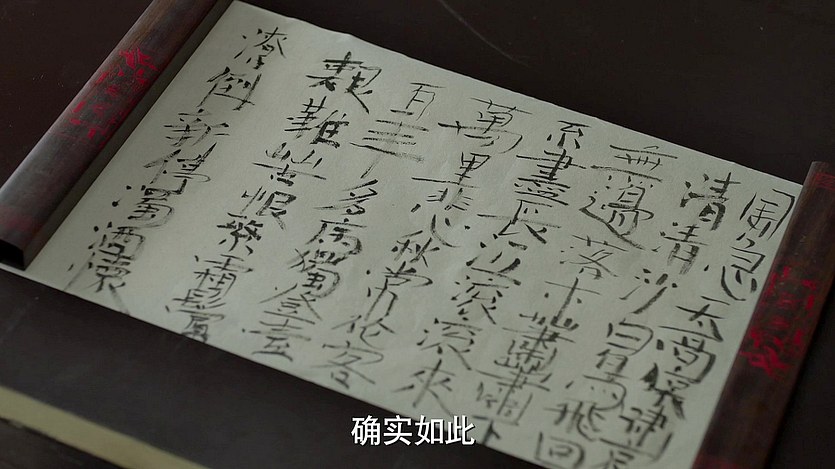 風急天高猿嘯哀
清清沙白鳥飛回
無邊落木蕭蕭下
盡長江滾滾來
萬里悲秋常作客
百年多病獨登臺
艱難苦恨繁霜鬢
潦倒新停濁酒懷
确实如此